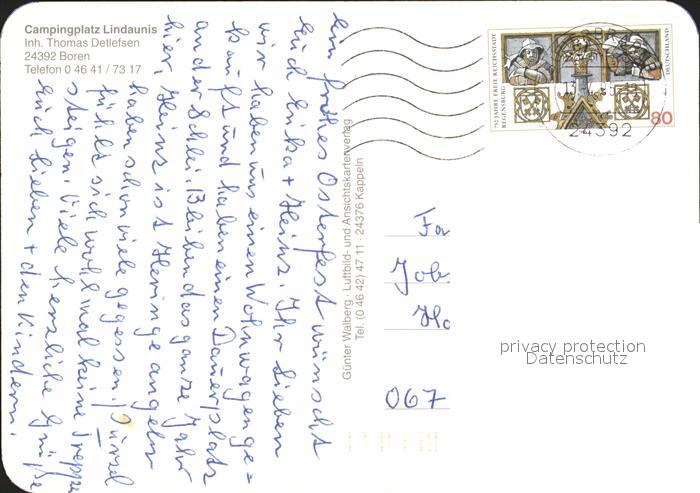 Campingplatz Lindaunis
Inh. Thomas Detlefsen
24392 Boren
Telefon 0 46 41 / 73 17
ein frohes Osterfest wünscht
Euch Erika + Heinz. Ihr Lieben
wir haben uns einen Wohnwagen ge=
kauft und haben einen Dauerplatz
an der Schlei. Bleiben das ganze Jahr
hier. Heinz ist Heringe angeln
haben schon viele gegessen.
fühlt sich wohl mal keine Treppe
steigen. Viele herzliche Grüße
Euch Lieben + den Kindern.
Günter Walberg · Luftbild- und Ansichtskartenverlag
Tel. (0 46 42) 47 11 · 24376 Kappeln
750 JAHRE FREIE REICHSSTADT
REGENSBURG
DEUTSCHLAND
80
24392
Fa
Joh
Ho
067
privacy protection
Datenschutz